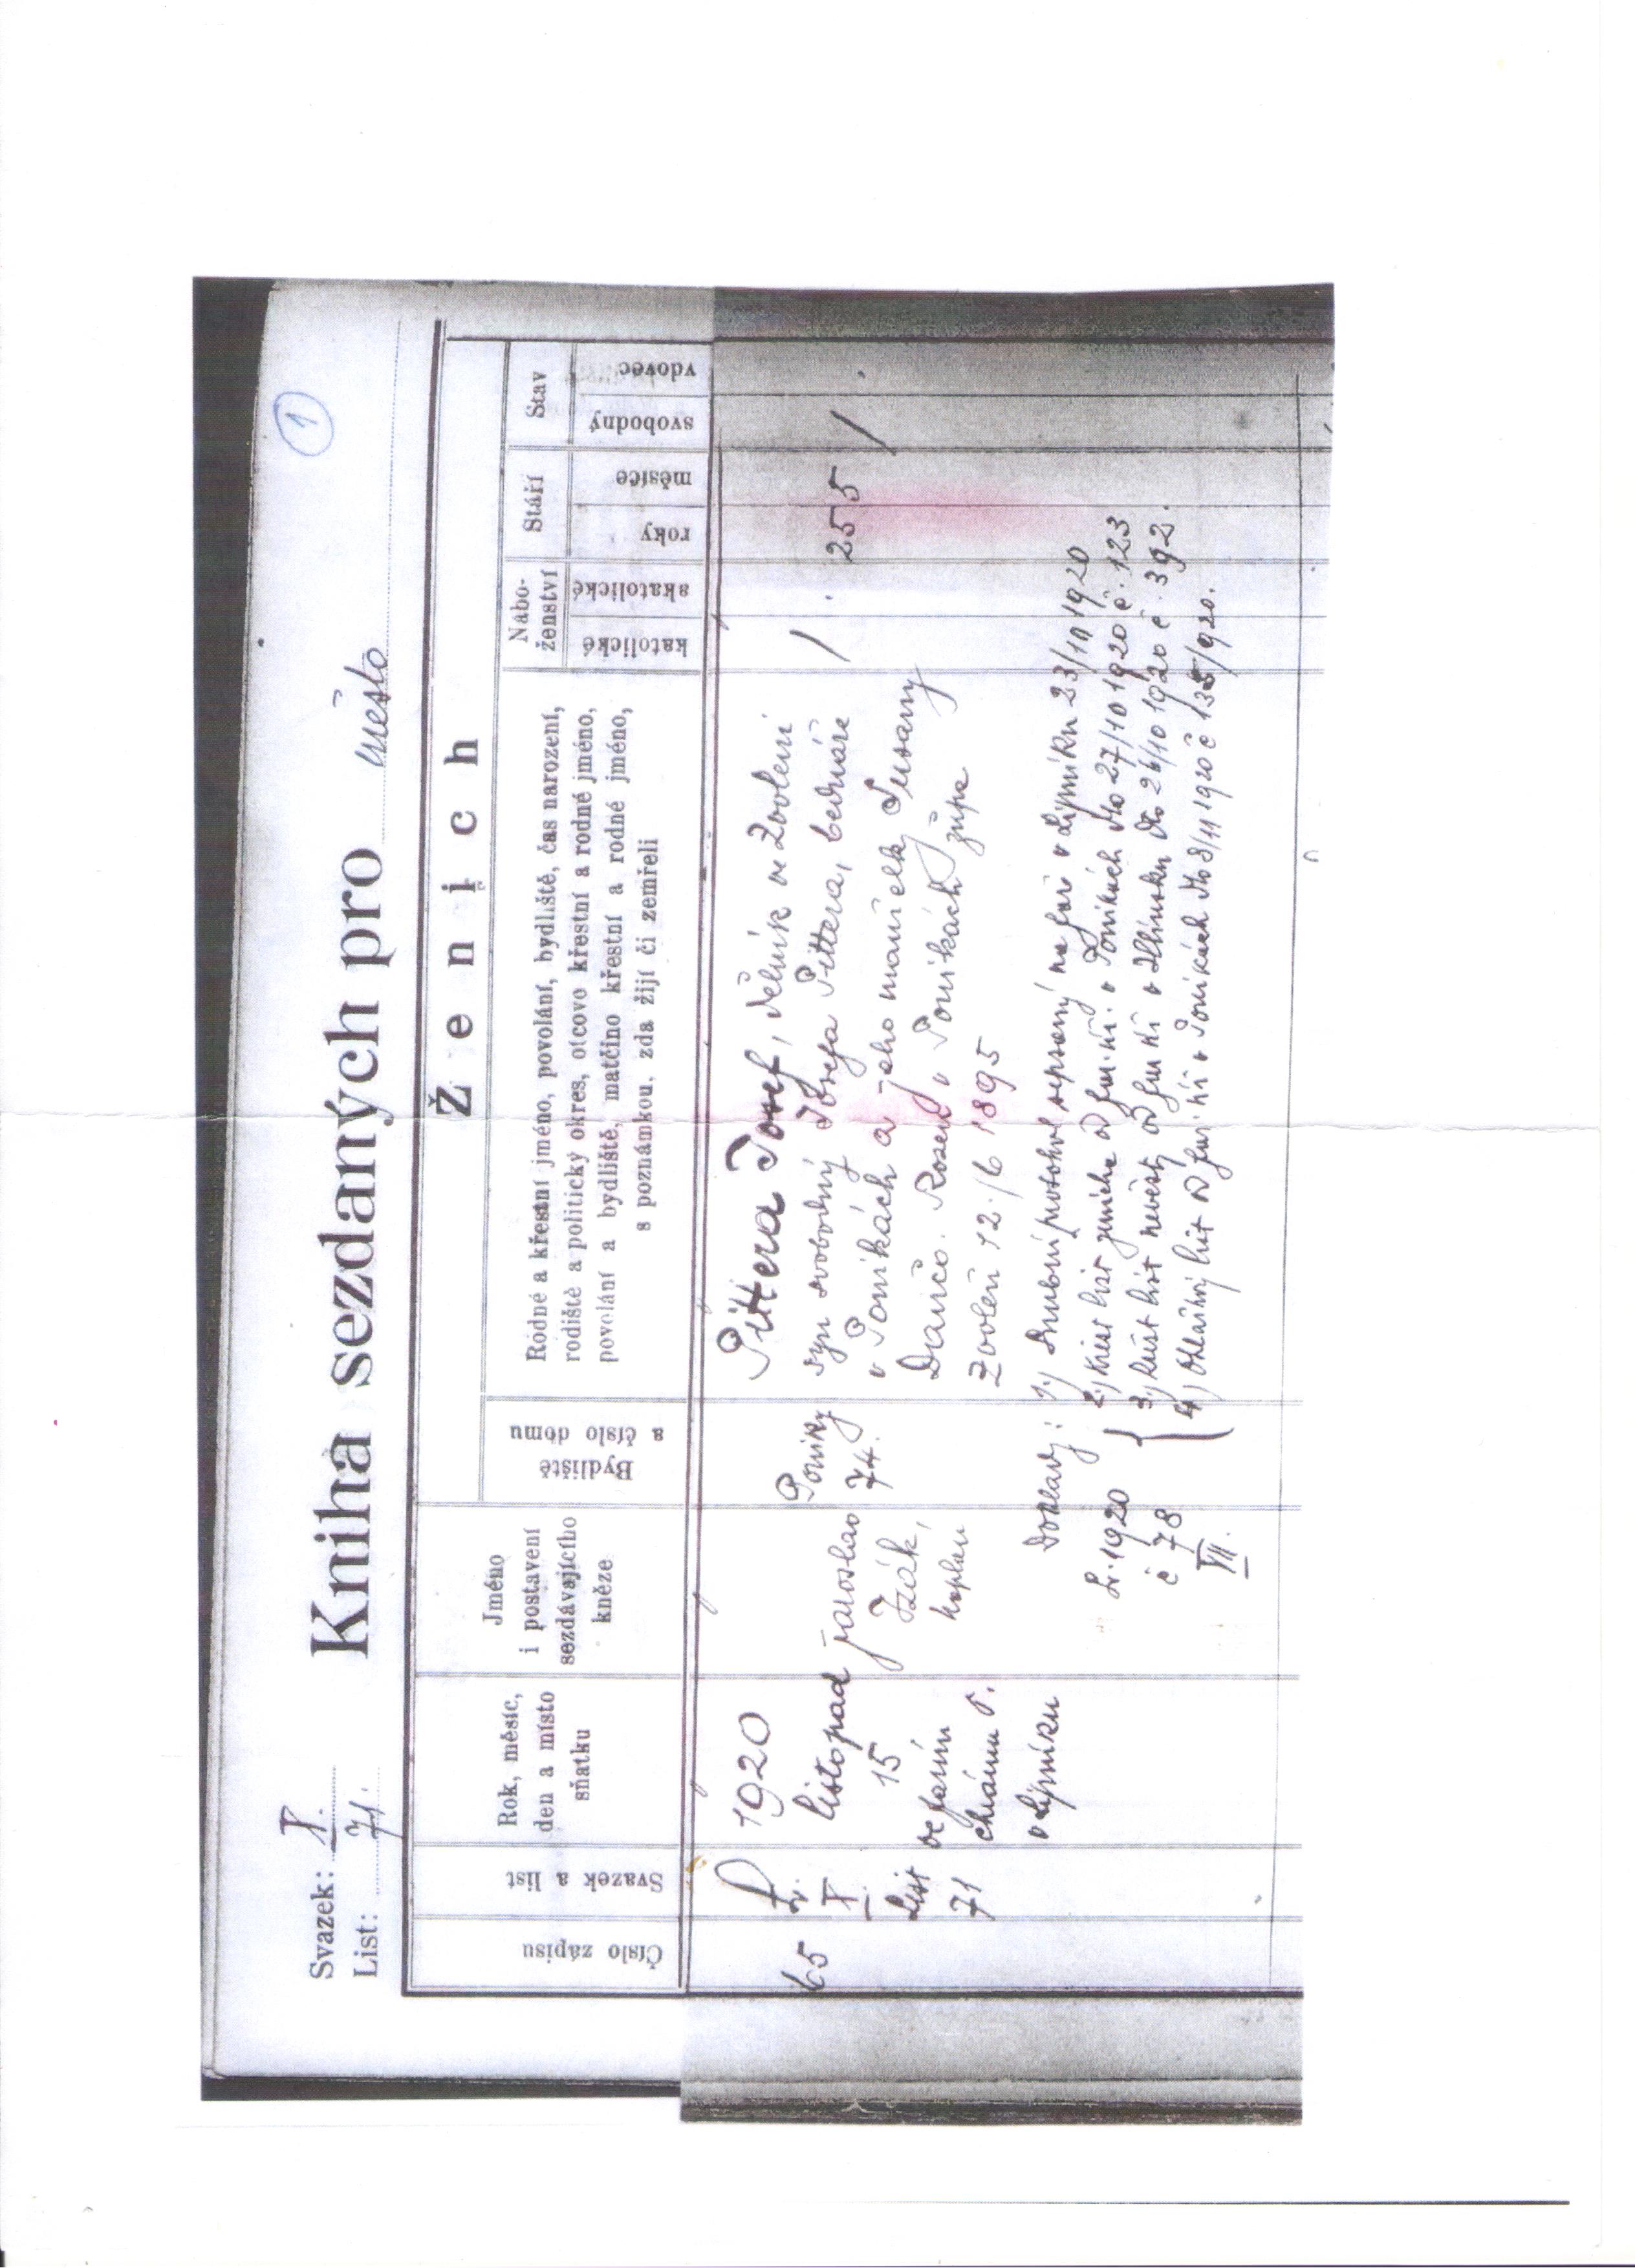 1
Svazek: X.
List: 71.
Kniha sezdaných pro město
Ženich
Číslo zápisu
Svazek a list
Rok, měsíc,
den a místo
sňatku
Jméno
i postavení
sezdávajícího
kněze
Bydliště
a číslo domu
Rodné a křestní jméno, povolání, bydliště, čas narození,
rodiště a politický okres, otcovo křestní a rodné jméno,
povolání a bydliště, matčino křestní a rodné jméno,
s poznámkou, zda žijí či zemřeli
Nabo-
ženství
katolické
akatolické
Stáří
roky
měsíce
Stav
svobodný
vdovec
65
Sv.
X.
List
71
1920
listopad
15
ve farním
chrámu P.
v Lipníku
Jaroslav
Žák,
kaplan
Poniky
74.
Pittera Josef, dělník ve Zvoleni
syn svobodný Josefa Pittera, bednáře
v Ponikách a jeho manželky Susany
Daučo. Rozen v Ponikách župa
Zvolen 12./6 1895
/
25 5
/
Doklady:
Sv. 1920
č 78
VII.
1.) Snubní protokol sepsaný na faře v Lipníku 23/10 1920
2.) Křest list ženicha od far. úř. v Ponikách dto 27/10 1920 č. 123
3.) křest list nevěsty od far úř v Hlinsku dto 26/10 1920 č. 392.
4.) Ohlášný list od far. úř. v Ponikách dto 8/11 1920 č 135/920.